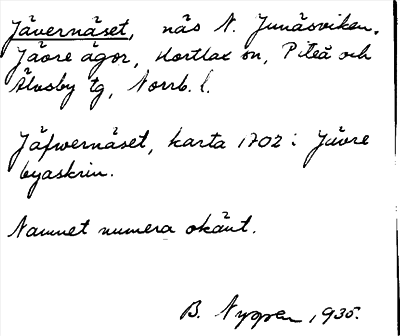 Jävernäset, näs N. Junäsviken,
Jävre ägor, Hortlax sn, Piteå och
Älvsby tg, Norrb. l.
Jäfwernäset, karta 1702 i Jävre
byaskrin.
Namnet numera okänt.
B. Nygren, 1935.